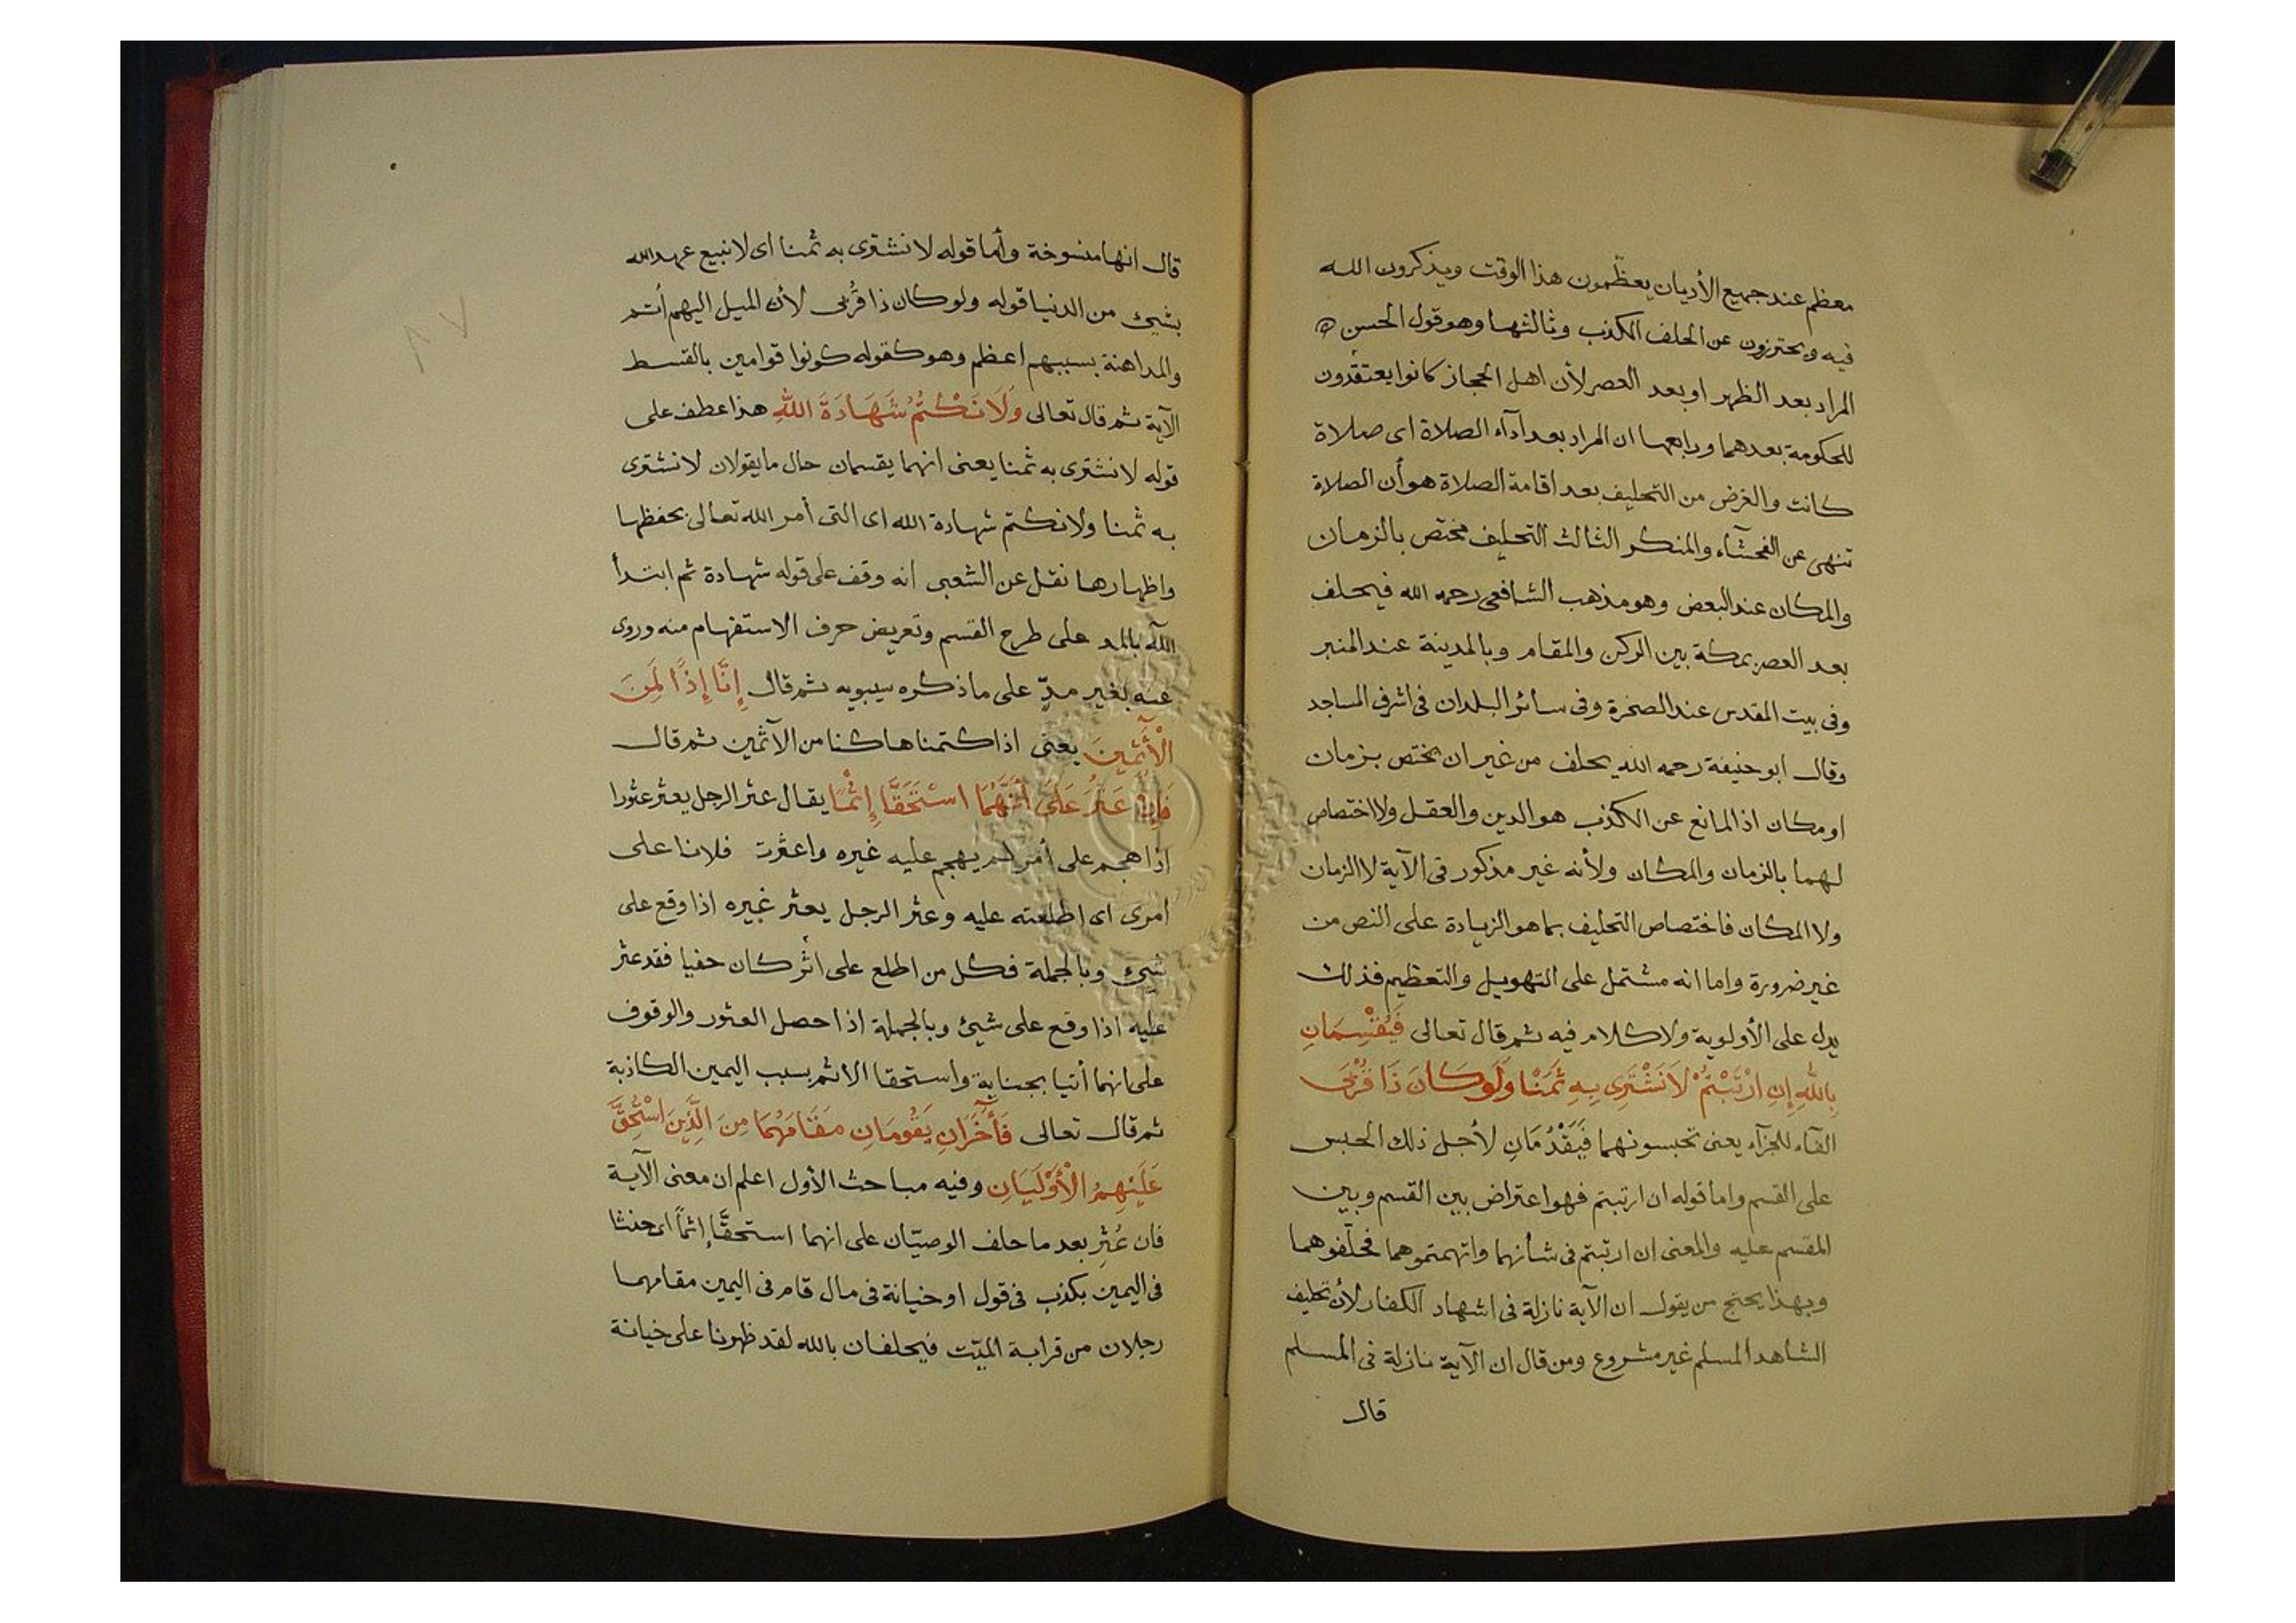 معظم عند جميع الأديان يعظّمون هذا الوقت ويذكرون الله
فيه ويحترزون عن الحلف الكذب وثالثها وهو قول الحسن
المراد بعد الظهر او بعد العصر لأن اهل الحجاز كانوا يعتقدون
للحكومة بعدهما ورابعها ان المراد بعد ادآء الصلاة اى صلاة
كانت والغرض من التحليف بعد اقامة الصلاة هو أن الصلاة
تنهى عن الفحشآء والمنكر الثالث التحليف مختص بالزمان
والمكان عند البعض وهو مذهب الشافعى رحمه الله فيحلف
بعد العصر بمكة بين الركن والمقام وبالمدينة عند المنبر
وفى بيت المقدس عند الصخرة وفى سائر البلدان فى اشرف المساجد
وقال ابو حنيفة رحمه الله يحلف من غير ان يختص بزمان
او مكان اذ المانع عن الكذب هو الدين والعقل ولا اختصاص
لهما بالزمان والمكان ولأنه غير مذكور فى الآية لا الزمان
ولا المكان فاختصاص التحليف بما هو الزيادة على النص من
غير ضرورة واما انه مشتمل على التهويل والتعظيم فذلك
يدل على الأولوية ولا كلام فيه ثم قال تعالى فَيُقْسِمَانِ
بِاللهِ إِنِ ارْتَبْتُمْ لَا نَشْتَرِى بِهِ ثَمَنًا وَلَو كَانَ ذَا قُرْبَى
الفآء للجزآء يعنى تحبسونهما فَيَقْدُمَانِ لأجل ذلك الحبس
على القسم واما قوله ان ارتبتم فهو اعتراض بين القسم وبين
المقسم عليه والمعنى ان ارتبتم فى شأنهما واتهمتموهما فحلّفوهما
وبهذا يحتج من يقول ان الآية نازلة فى اشهاد الكفار لأن تحليف
الشاهد المسلم غير مشروع ومن قال ان الآية نازلة فى المسلم
قال
قال انها منسوخة وأما قوله لا نشترى به ثمنا اى لا نبيع عهد الله
بشيئ من الدنيا قوله ولو كان ذا قُربى لأن الميل اليهم أتم
والمداهنة بسببهم اعظم وهو كقوله كونوا قوامين بالقسط
الآية ثم قال تعالى وَلَا نَكْتُمُ شَهَادَةَ اللهِ هذا عطف على
قوله لا نشترى به ثمنا يعنى انهما يقسمان حال ما يقولان لا نشترى
به ثمنا ولا نكتم شهادة الله اى التى أمر الله تعالى بحفظها
واظهارها نقل عن الشعبى انه وقف على قوله شهادة ثم ابتدأ
اللّه بالمد على طرح القسم وتعريض حرف الاستفهام منه وروى
عنه بغير مدّ على ما ذكره سيبويه ثم قال إِنَّا إِذًا لَمِنَ
الْأَثِمِينَ يعنى اذا كتمناها كنا من الآثمين ثم قال
فَإِنْ عُثِرَ عَلَى أَنَّهُمَا اسْتَحَقَّا إِثْمًا يقال عثر الرجل يعثر عثورا
اذا هجم على أمر لم يهجم عليه غيره واعثرت فلانا على
امرى اى اطلعته عليه وعثر الرجل يعثر غيره اذا وقع على
شيئ وبالجملة فكل من اطلع على اثر كان خفيا فقد عثر
عليه اذا وقع على شيئ وبالجملة اذا حصل العثور والوقوف
على انهما أتيا بجناية واستحقا الاثم بسبب اليمين الكاذبة
ثم قال تعالى فَأَخَرَانِ يَقُومَانِ مَقَامَهُمَا مِنَ الَّذِينَ اسْتُحِقَّ
عَلَيْهِمُ الْأَوْلَيَانِ وفيه مباحث الأول اعلم ان معنى الآية
فان عُثِر بعد ما حلف الوصيّان على انهما استحقَّا إثماً اى حنثا
فى اليمين بكذب فى قول او خيانة فى مال قام فى اليمين مقامهما
رجلان من قرابة الميّت فيحلفان بالله لقد ظهرنا على خيانة